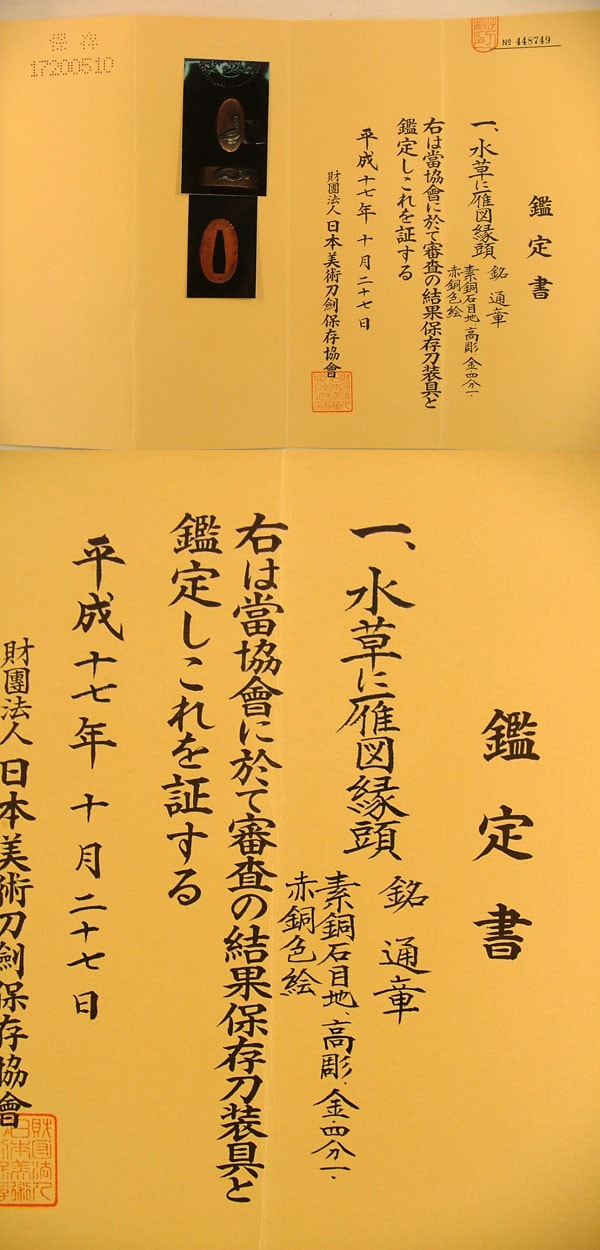 保存
17200510
№ 448749
鑑定書
一、水草に雁図縁頭
銘 通章
素銅石目地、高彫、金・四分一・
赤銅色絵
右は當協會に於て審査の結果保存刀装具と
鑑定しこれを証する
平成十七年 十月二十七日
財團法人 日本美術刀劍保存協會
鑑定書
一、水草に雁図縁頭
銘 通章
素銅石目地、高彫、金・四分一・
赤銅色絵
右は當協會に於て審査の結果保存刀装具と
鑑定しこれを証する
平成十七年 十月二十七日
財團法人 日本美術刀劍保存協會